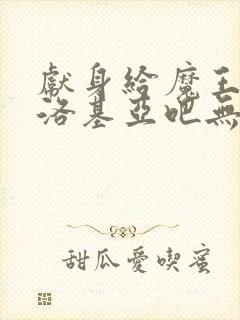 獻身給魔王
洛基亞吧無
甜瓜愛喫蜜